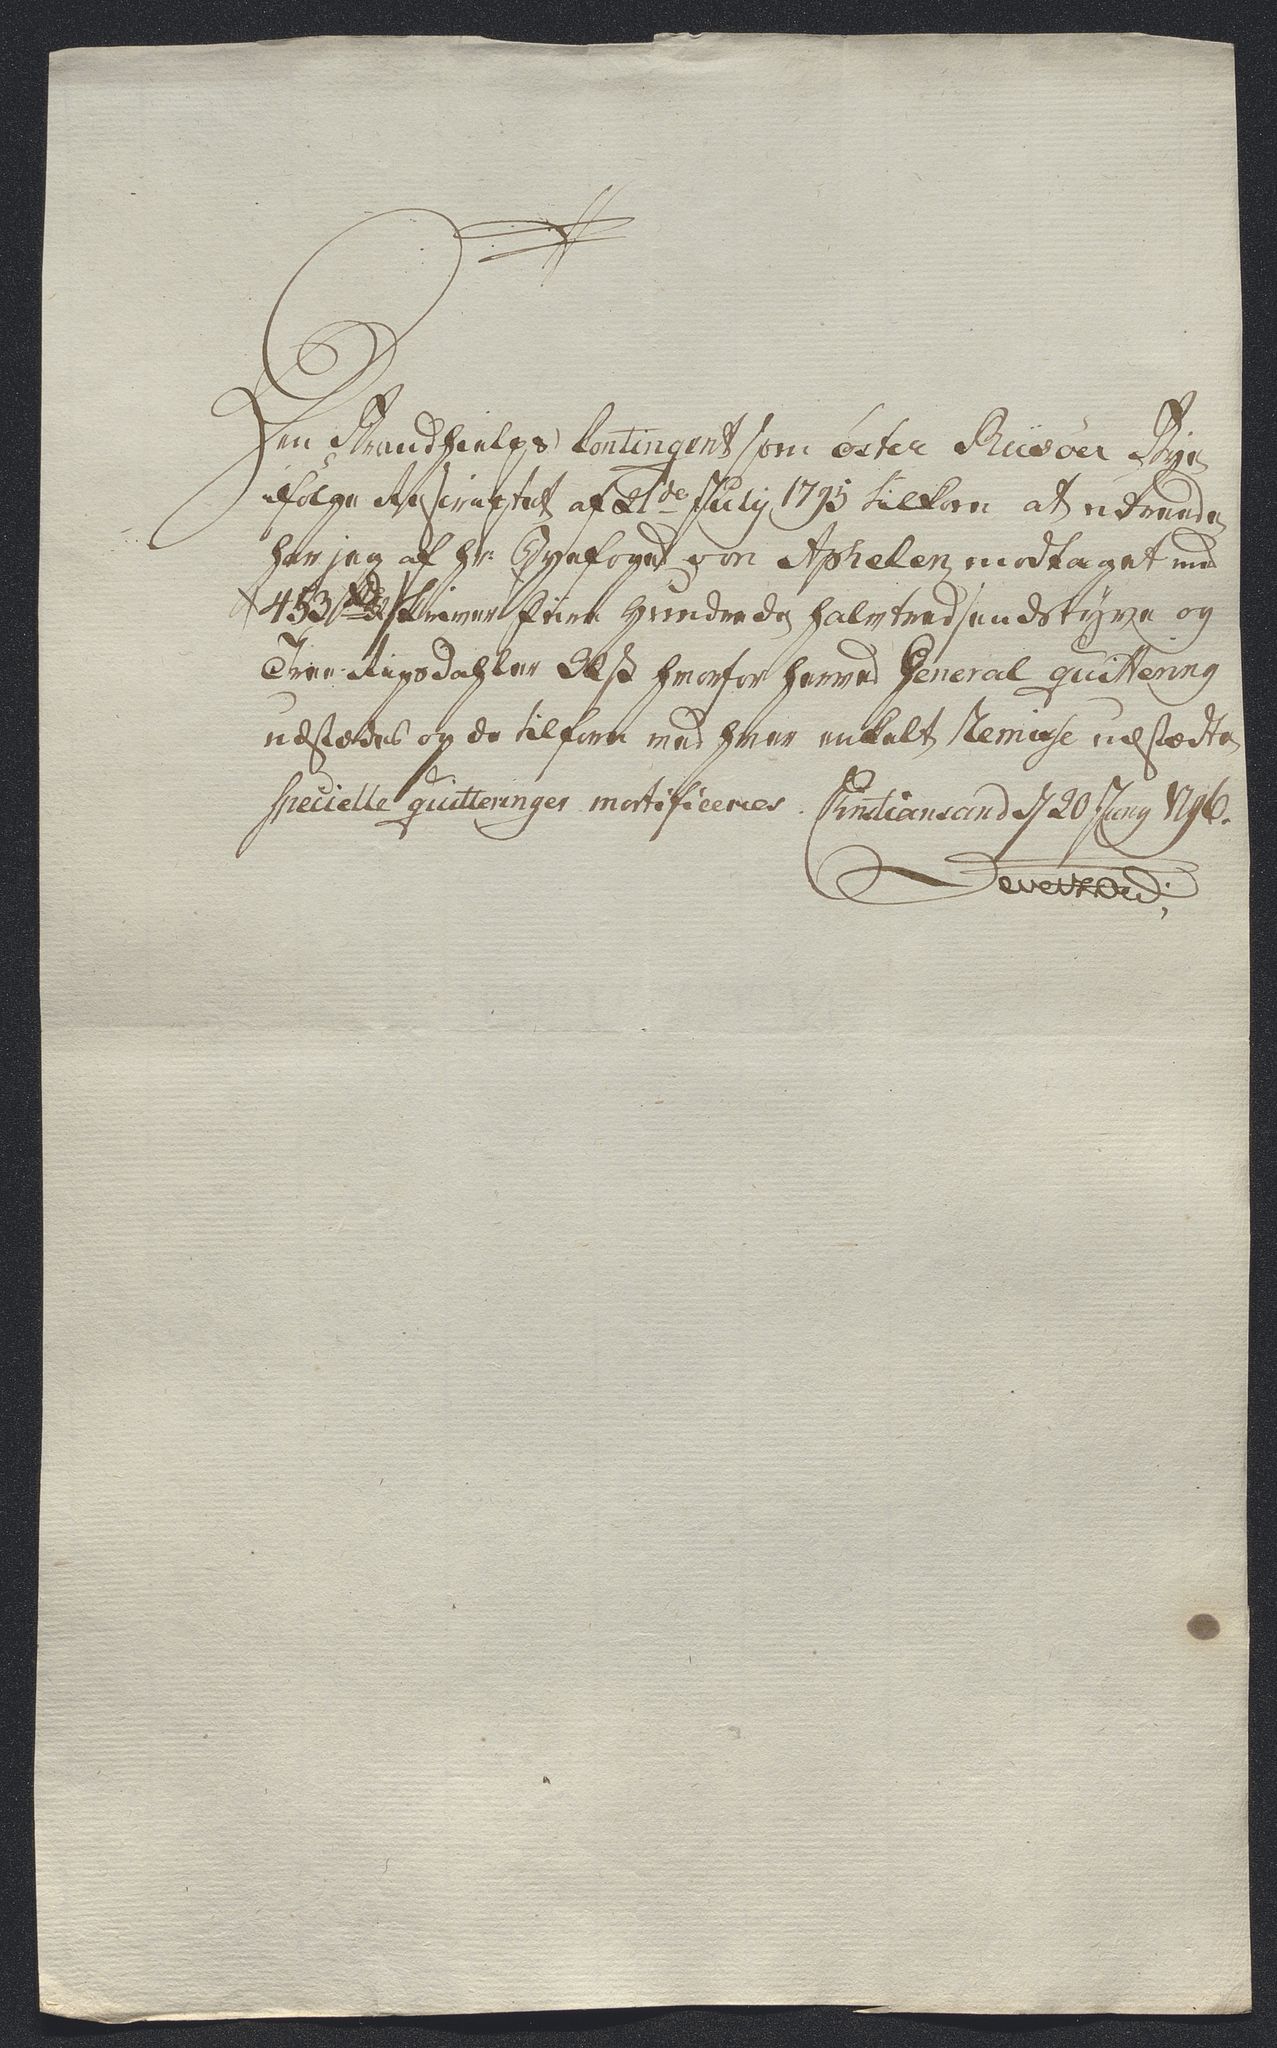 Den Brandhielps Contingent som öster Riisöer Bye
ifølge Rescriptet af 31de July 1795 tilkom at udreede
har jeg af Hr: Byefoged von Aphelen modtaget med
453 rd skriver fiire Hundrede halvtredsindstyve og
Tree Rigsdahler hvorfor herved General quittering
udstædes og de tilforn med hver enkelt Remisse udstædte
specielle quitteringer mortificeres. Christiansand d 20 Juny 1796.